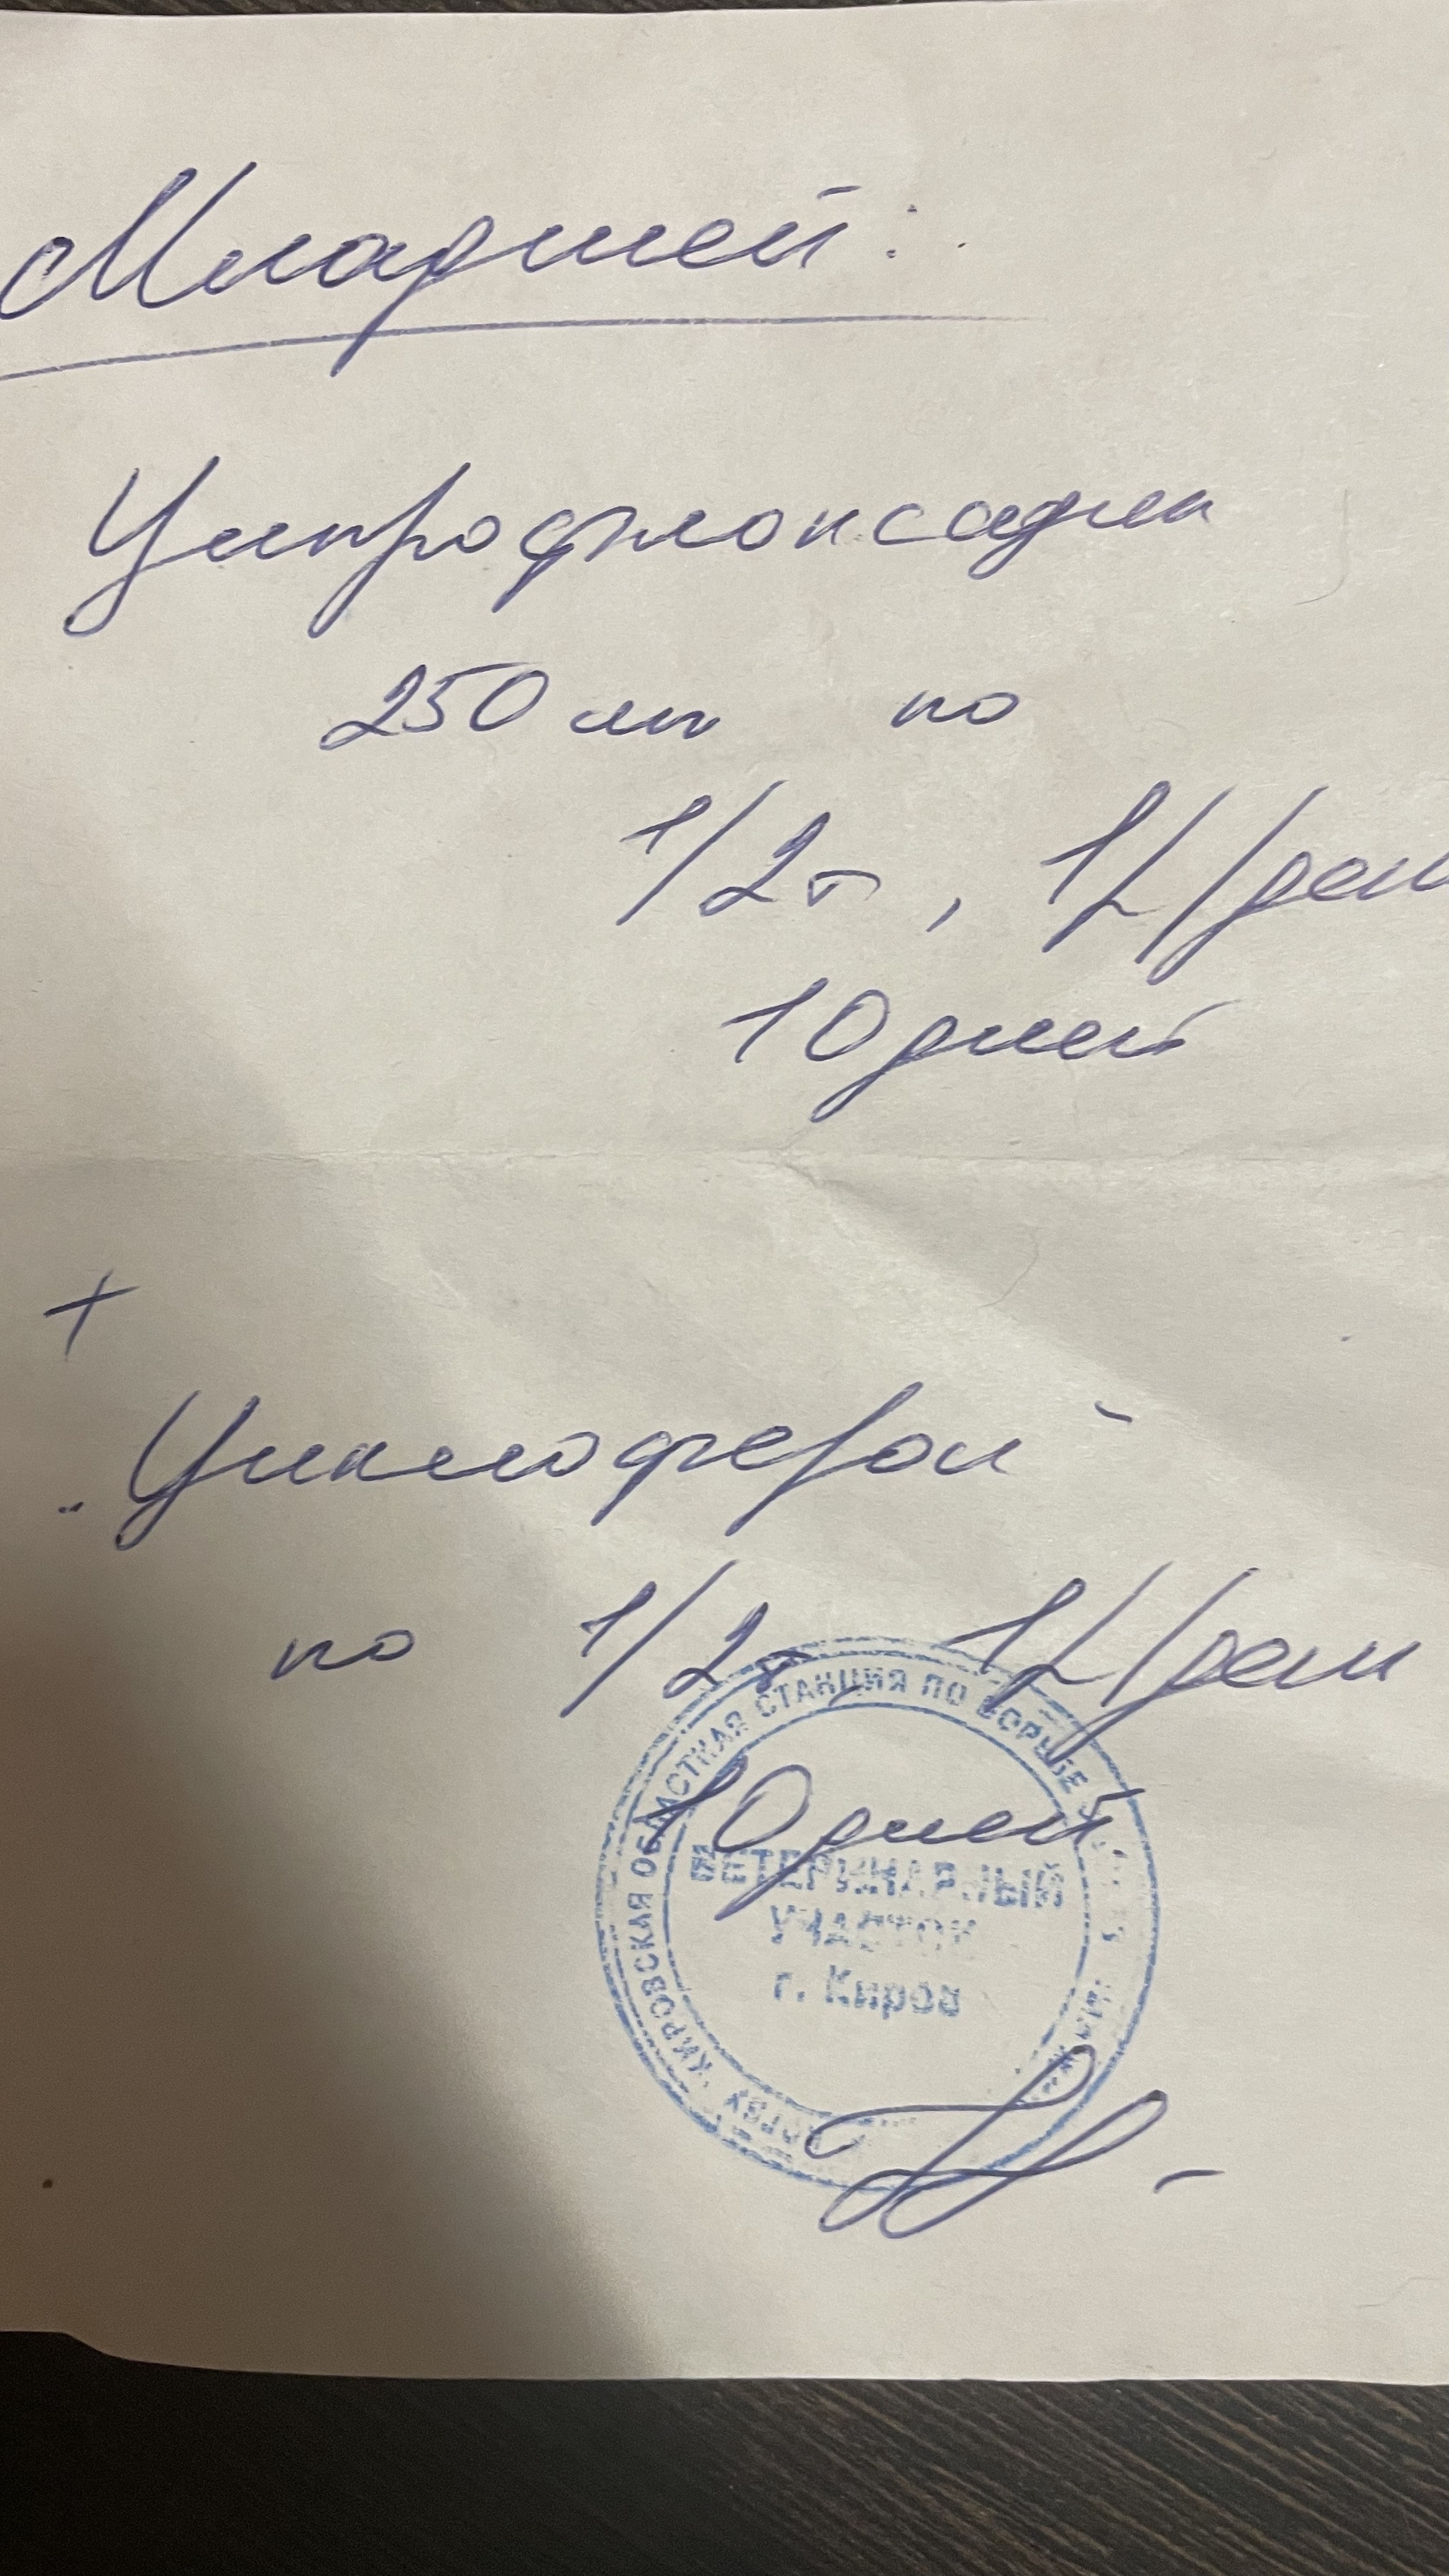 Младшей:
Ципрофлоксацин
250 мг по
1/2 т, 1 р/ден
10 дней
+
"Циклоферон"
по 1/2 т, 1 р/ден
10 дней
КИРОВСКАЯ ОБЛАСТНАЯ СТАНЦИЯ ПО БОРЬБЕ
ВЕТЕРИНАРНЫЙ
УЧАСТОК
г. Киров